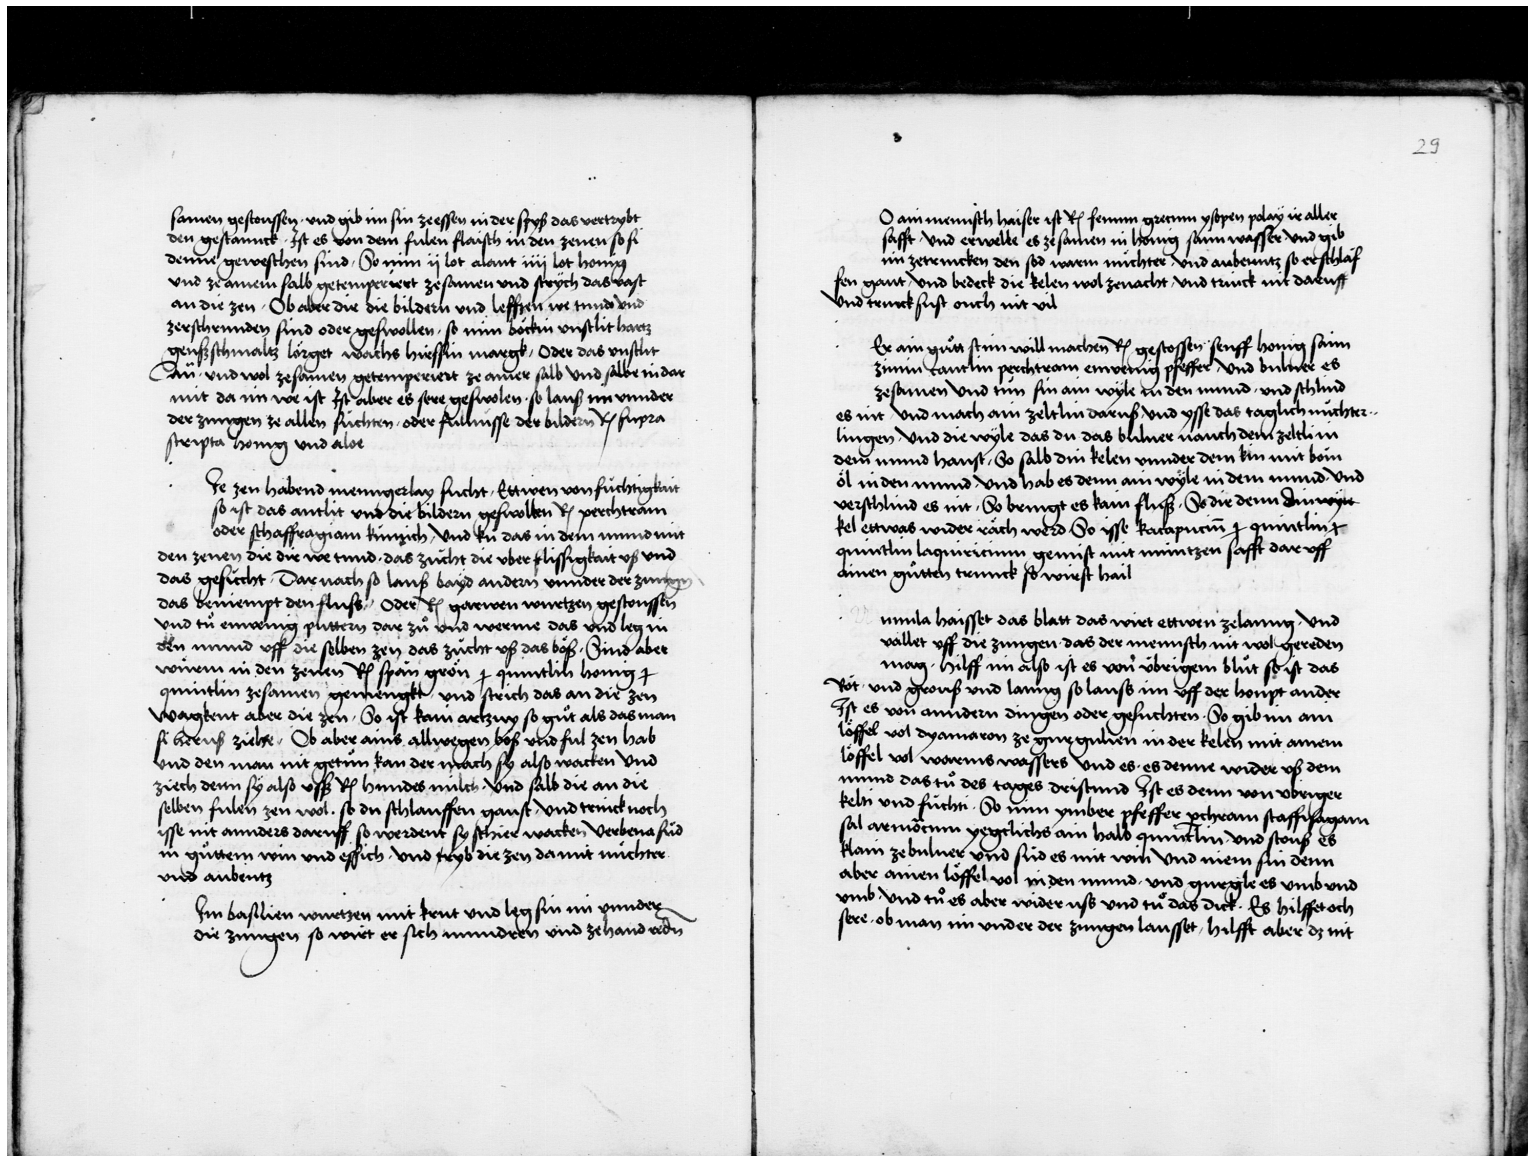 samen gestoussen · und gib im sin ze essen in der spyß das vertrybt
den gestannck · Ist es von dem fulen flaisch in den zenen so si
denne geweschen sind · So nim ij lot alant iiij lot honig
und ze amem salb getemperiert zesamen und strych das vast
an die zen · Ob aber die die bildern und lefftzen we tund und
zerschrunden sind oder geswollen · so nim böckin unslit hartz
genßschmaltz lörget wachs hirssin margk · Oder das unslit
und wol zesamen getemperiert ze ainer salb und salbe in dar
mit da im we ist Ist aber es sere geswolen · so lauß im unnder
der zungen ze allen suchten · oder fulnusse der bildern ℞ supra
scripta honig und aloe
Ie zen habend mengerlay sucht · Ettwen von fuchtigkait
so ist das antlit und die bildern geswollen ℞ perchtram
oder schaffragiam künzich · und kü das in dem mund mit
den zenen die dir we tund · das zücht die uber flissigkait uß und
das gesuccht · Dar nach so lauß bayd andern unnder der zungen
das beniempt den fluss · Oder ℞ garwen wurtzen gestoussen
und tů enwenig puttern dar zů und werme das und leg in
den mund uff die selben zen das zücht uß das böß · Sind aber
würem in den zenen ℞ span grön quintlin honig
quintlin zesamen gemengkt und strich das an die zen
Wagkent aber die zen · So ist kain artzny so gůt als das man
si heruß ziehe · Ob aber ains allwegen böß und ful zen hab
und den man nit getůn kan der mach sy also wacken und
ziech denn sy also usß ℞ hundes milch · und salb die an die
selben fulen zen wol · so du schlauffen gaust · und trinck noch
isse nit annders daruff so werdent sy schier wacken Verbena süd
in gůttem win und essich · und tryb die zen damit nüchter
und aubentz
Im basilien wurtzen mit krut und leg sin im unnder
die zungen so wirt er sich mundren und zehand redn
29
O ain mennsch haiser ist ℞ fenum grecum ysopen polay ir aller
safft · und erwelle es zesamen in honig samm wasser und gib
im zetrincken den sod warm nüchter und aubentz so er schlaf
fen gant · und bedeck die kelen wol zenacht · und trinck nit daruff
und trinck sust ouch nit vil
Er ain gůtt stim will machen ℞ gestossen senff honig saim
zimin zantlin perchtram enwenig pfeffer und bulner es
zesamen und tůn sin ain wyle in den mund · und schlind
es nit · und mach ain zeltlin daruß und ysse das täglich nüchter
lingen und die wyle das du das bulner nauch dem zeltlin in
dem mund haust · So salb din kelen unnder dem kin mit boin
öl in den mund und hab es denn ain wyle in dem mund · und
verschlind es nit · So bringt es kain fluß · So die denn ain wyle
kel ettwas wider räch werd So isse kacapuciū quintlin
quintlin laquiricium gemist mit mintzen safft dar uff
ainen gůtten trunck so wirst hail
uuula haisset das blatt das wirt ettwen ze lanng · und
vallet uff die zungen · das der mennsch nit wol gereden
mag · hilff im also ist es von übrigem blůt so ist das
Rot · und grouß und lanng so lauss im uff der houpt ander
Ist es von anndern dingen oder gesuchten · So gib im ain
löffel vol dyamaron ze gurgulien in der kelen mit ainem
löffel vol warms wassers und es · es denne wider uß dem
mund das tů des tages dristund Ist es denn von übriger
keltin und füchti · So nim ymber pfeffer pchram staffisagam
sal armöcum yegclichs ain halb quintlin · und stouß es
klain ze bulner und süd es mit win und niem sin denn
aber ainen löffel vol in den mund · und gurgle es umb und
umb · und tů es aber wider uss und tů das dick · Es hilffet och
sere · ob man im under der zungen lausset · hilfft aber dz nit